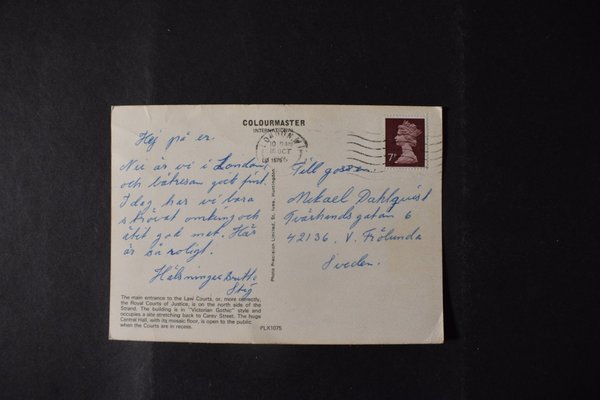 COLOURMASTER
INTERNATIONAL
LONDON
OCT
1975
7P
Hej på er.
Nu är vi i London,
och båtresan gick fint.
Idag har vi bara
strövat omkring och
ätit god mat. Här
är så roligt.
Hälsningar
Stig
Till gossen.
Mikael Dahlquist
Tvärhandsgatan 6
42136. V. Frölunda
Sweden.
Photo Precision Limited, St. Ives, Huntingdon
The main entrance to the Law Courts, or, more correctly,
the Royal Courts of Justice, is on the north side of the
Strand. The building is in "Victorian Gothic" style and
occupies a site stretching back to Carey Street. The huge
Central Hall, with its mosaic floor, is open to the public
when the Courts are in recess.
PLX1075